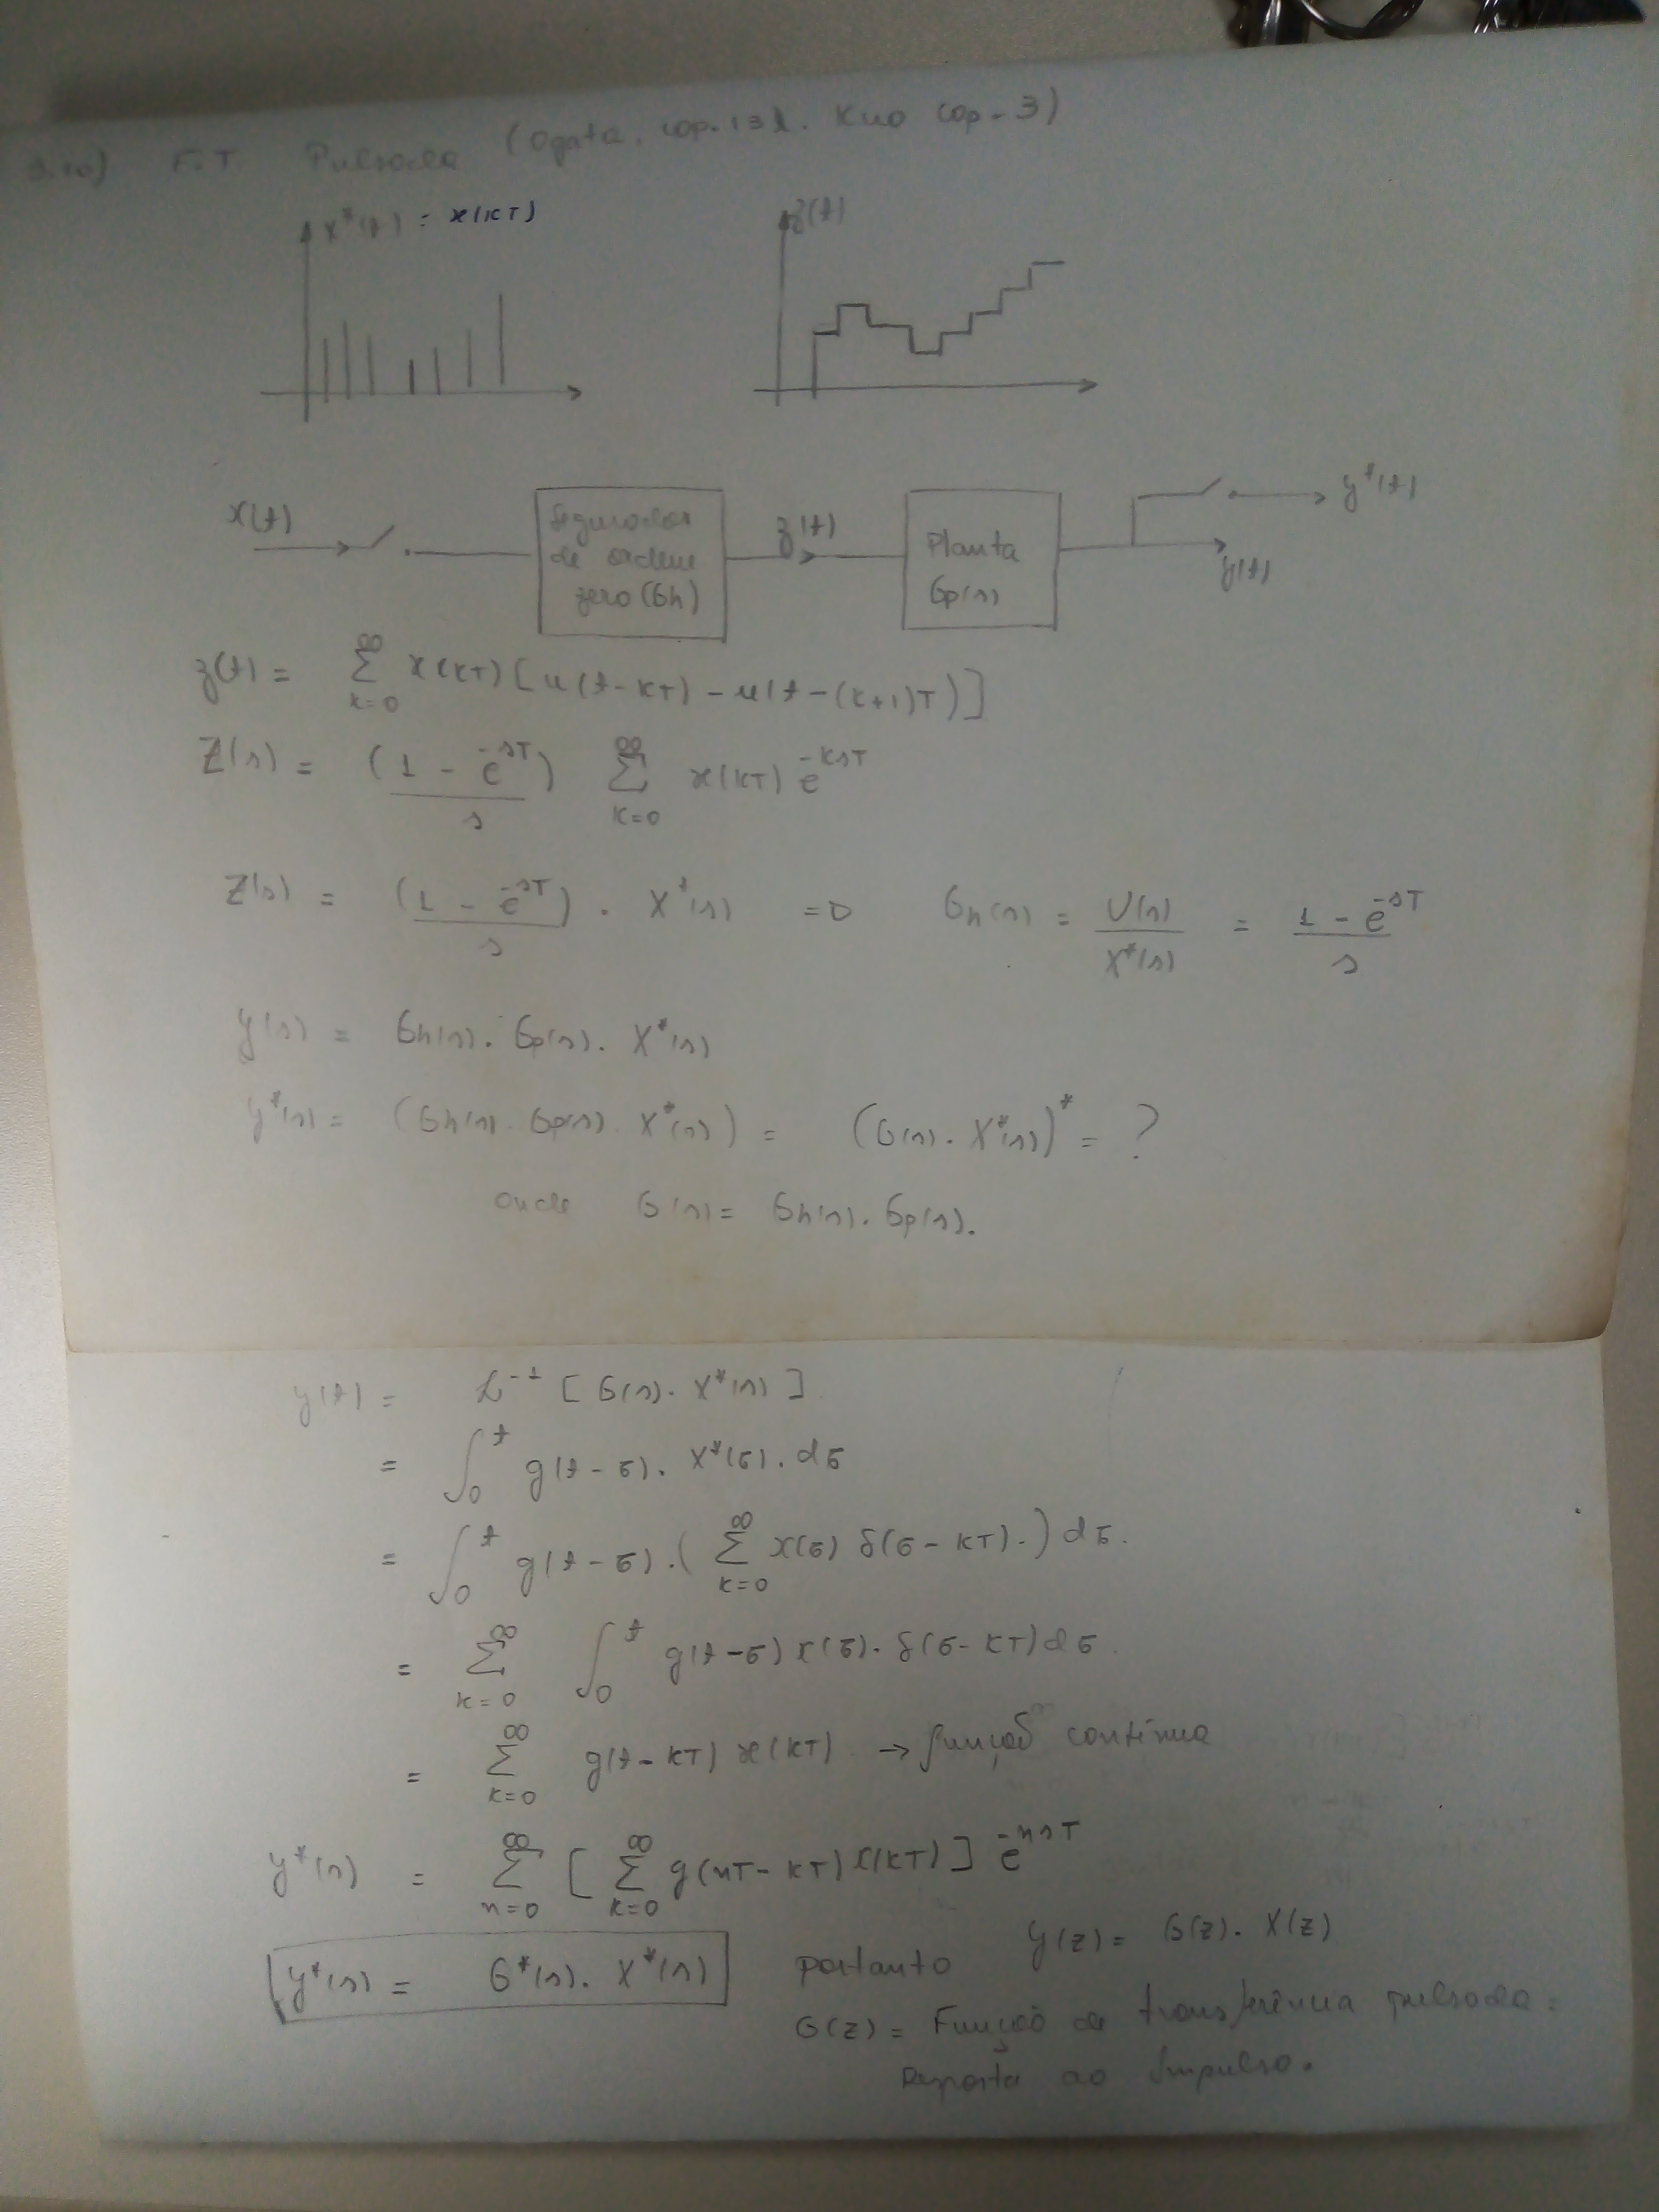 F.T. Pulsada (Ogata, cap. 13 e. Kuo cap. 3)
X*(t) = x(kT)
z(t)
x(t)
Segurador
de ordem
zero (Gh)
z(t)
Planta
Gp(s)
y*(t)
y(t)
z(t) = ∑_{k=0}^{∞} x(kT) [u(t-kT) - u(t-(k+1)T)]
Z(s) = (1 - e^{-sT})/s ∑_{k=0}^{∞} x(kT) e^{-ksT}
Z(s) = (1 - e^{-sT})/s . X*(s) => Gh(s) = U(s)/X*(s) = (1 - e^{-sT})/s
Y(s) = Gh(s). Gp(s). X*(s)
Y*(s) = (Gh(s). Gp(s). X*(s)) = (G(s). X*(s))* = ?
onde G(s) = Gh(s). Gp(s).
y(t) = L^{-1} [G(s). X*(s)]
= ∫_0^t g(t-σ). X*(σ). dσ
= ∫_0^t g(t-σ).(∑_{k=0}^{∞} x(σ) δ(σ-kT).) dσ.
= ∑_{k=0}^{∞} ∫_0^t g(t-σ) x(σ). δ(σ-kT) dσ.
= ∑_{k=0}^{∞} g(t-kT) x(kT) → função contínua
Y*(s) = ∑_{n=0}^{∞} [∑_{k=0}^{∞} g(nT-kT) x(kT)] e^{-nsT}
Y*(s) = G*(s). X*(s) portanto Y(z) = G(z). X(z)
G(z) = Função de transferência pulsada =
Resposta ao Impulso.